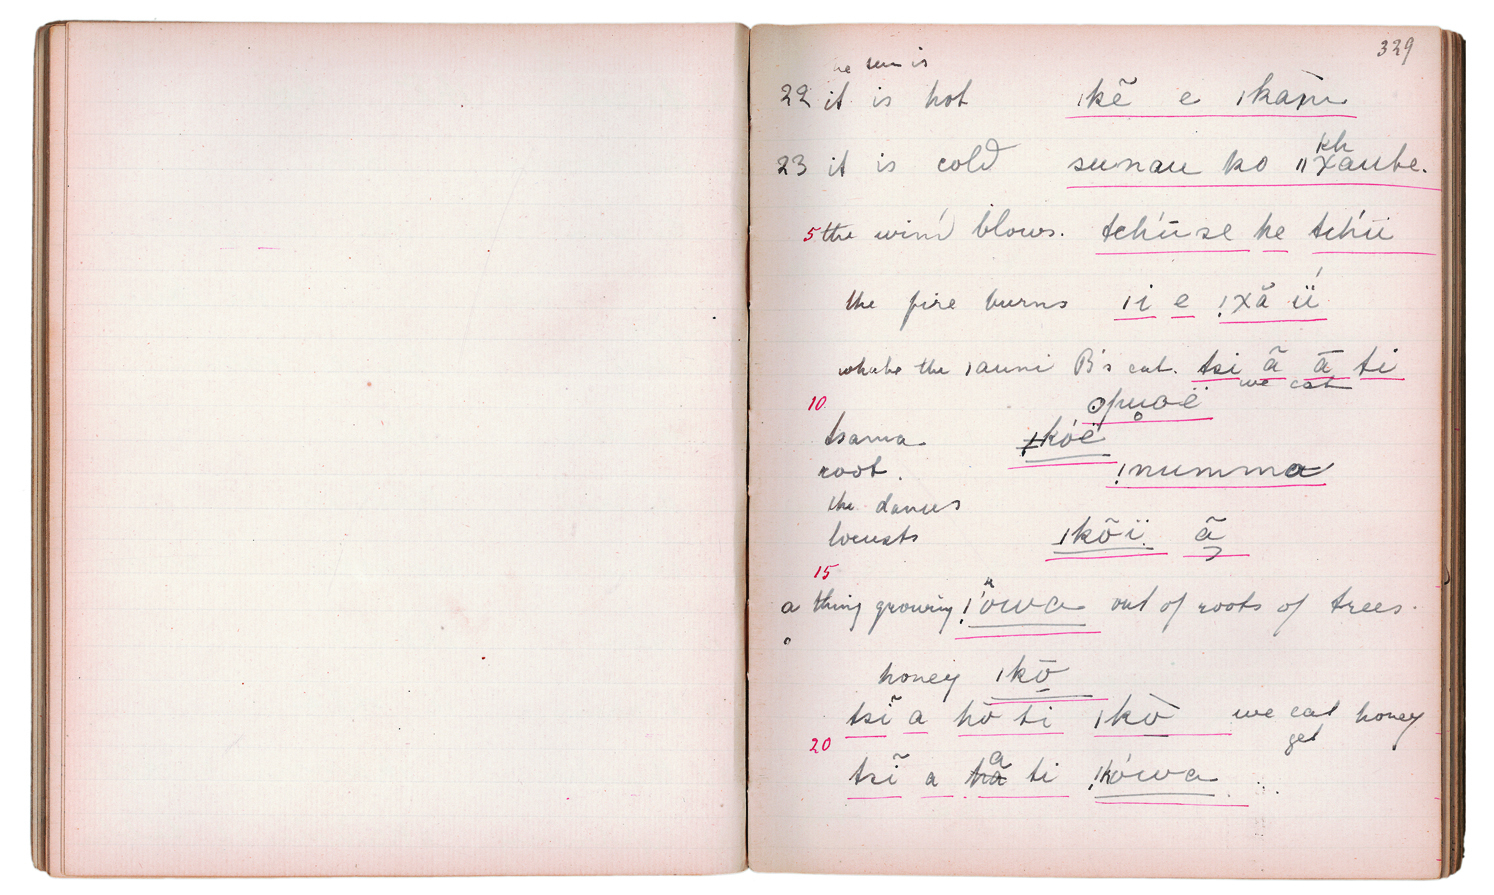 329
the sun is
22 it is hot ǀkẽ e ǀkàm
kh
23 it is cold sunau ko ǁχaube.
5 the wind blows. tchúse ke tchúï
the fire burns ǀi e ǃχã́ ǘ
what the ǀauni B's eat. tsi ã ā ti
we eat
10
tsama ǂkóë
root. ǃnumma
the
locusts ǀkõï ã
15
a thing growing ǃówa out of roots of trees.
honey ǀkō
tsĩ a hō ti ǀkō we eat honey
get
20
tsĩ a ã ti ǃkówa